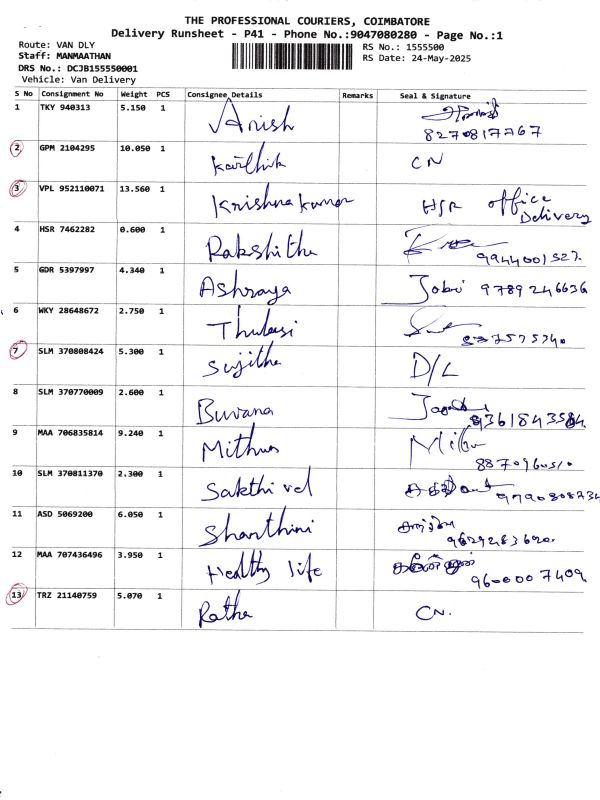 THE PROFESSIONAL COURIERS, COIMBATORE
Delivery Runsheet - P41 - Phone No.:9047080280 - Page No.:1
Route: VAN DLY
Staff: MANMAATHAN
DRS No.: DCJB155550001
Vehicle: Van Delivery
RS No.: 1555500
RS Date: 24-May-2025
S No Consignment No Weight PCS Consignee Details Remarks Seal & Signature
1 TKY 940313 5.150 1 Anish
8270817767
2 GPM 2104295 10.050 1 Karthik CN
3 VPL 952110071 13.560 1 Krishna kumar HSR office
Delivery
4 HSR 7462282 0.600 1 Rakshitha
5 GDR 5397997 4.340 1 Ashraya Jobi 9789246636
6 WKY 28648672 2.750 1 Thulasi
7 SLM 370808424 5.300 1 Sujitha D/L
8 SLM 370770009 2.600 1 Buvana
9 MAA 706835814 9.240 1 Mithun
10 SLM 370811370 2.300 1 Sakthi vel
11 ASD 5069200 6.050 1 Shanthini
12 MAA 707436496 3.950 1 Healthy life
9600007409
13 TRZ 21140759 5.070 1 Ratha CN.